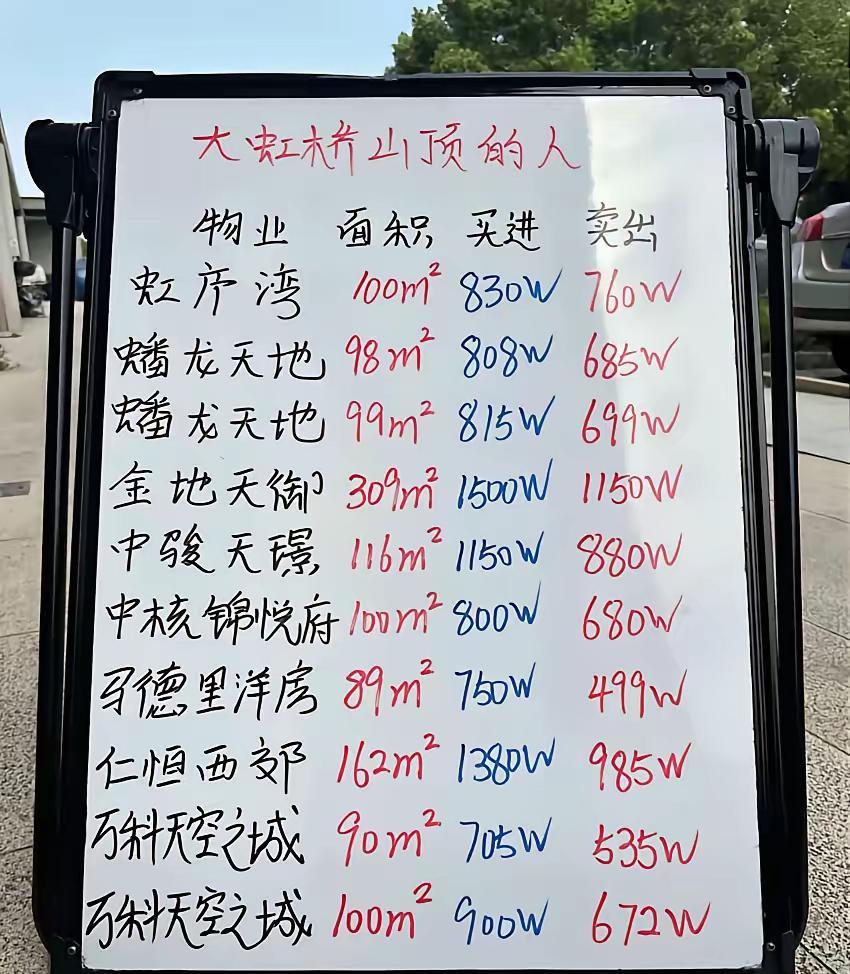 大虹桥山顶的人
物业 面积 买进 卖出
虹庐湾 100m² 830W 760W
蟠龙天地 98m² 808W 685W
蟠龙天地 99m² 815W 699W
金地天御 309m² 1500W 1150W
中骏天璟 116m² 1150W 880W
中核锦悦府 100m² 800W 680W
马德里洋房 89m² 750W 499W
仁恒西郊 162m² 1380W 985W
万科天空之城 90m² 705W 535W
万科天空之城 100m² 900W 672W